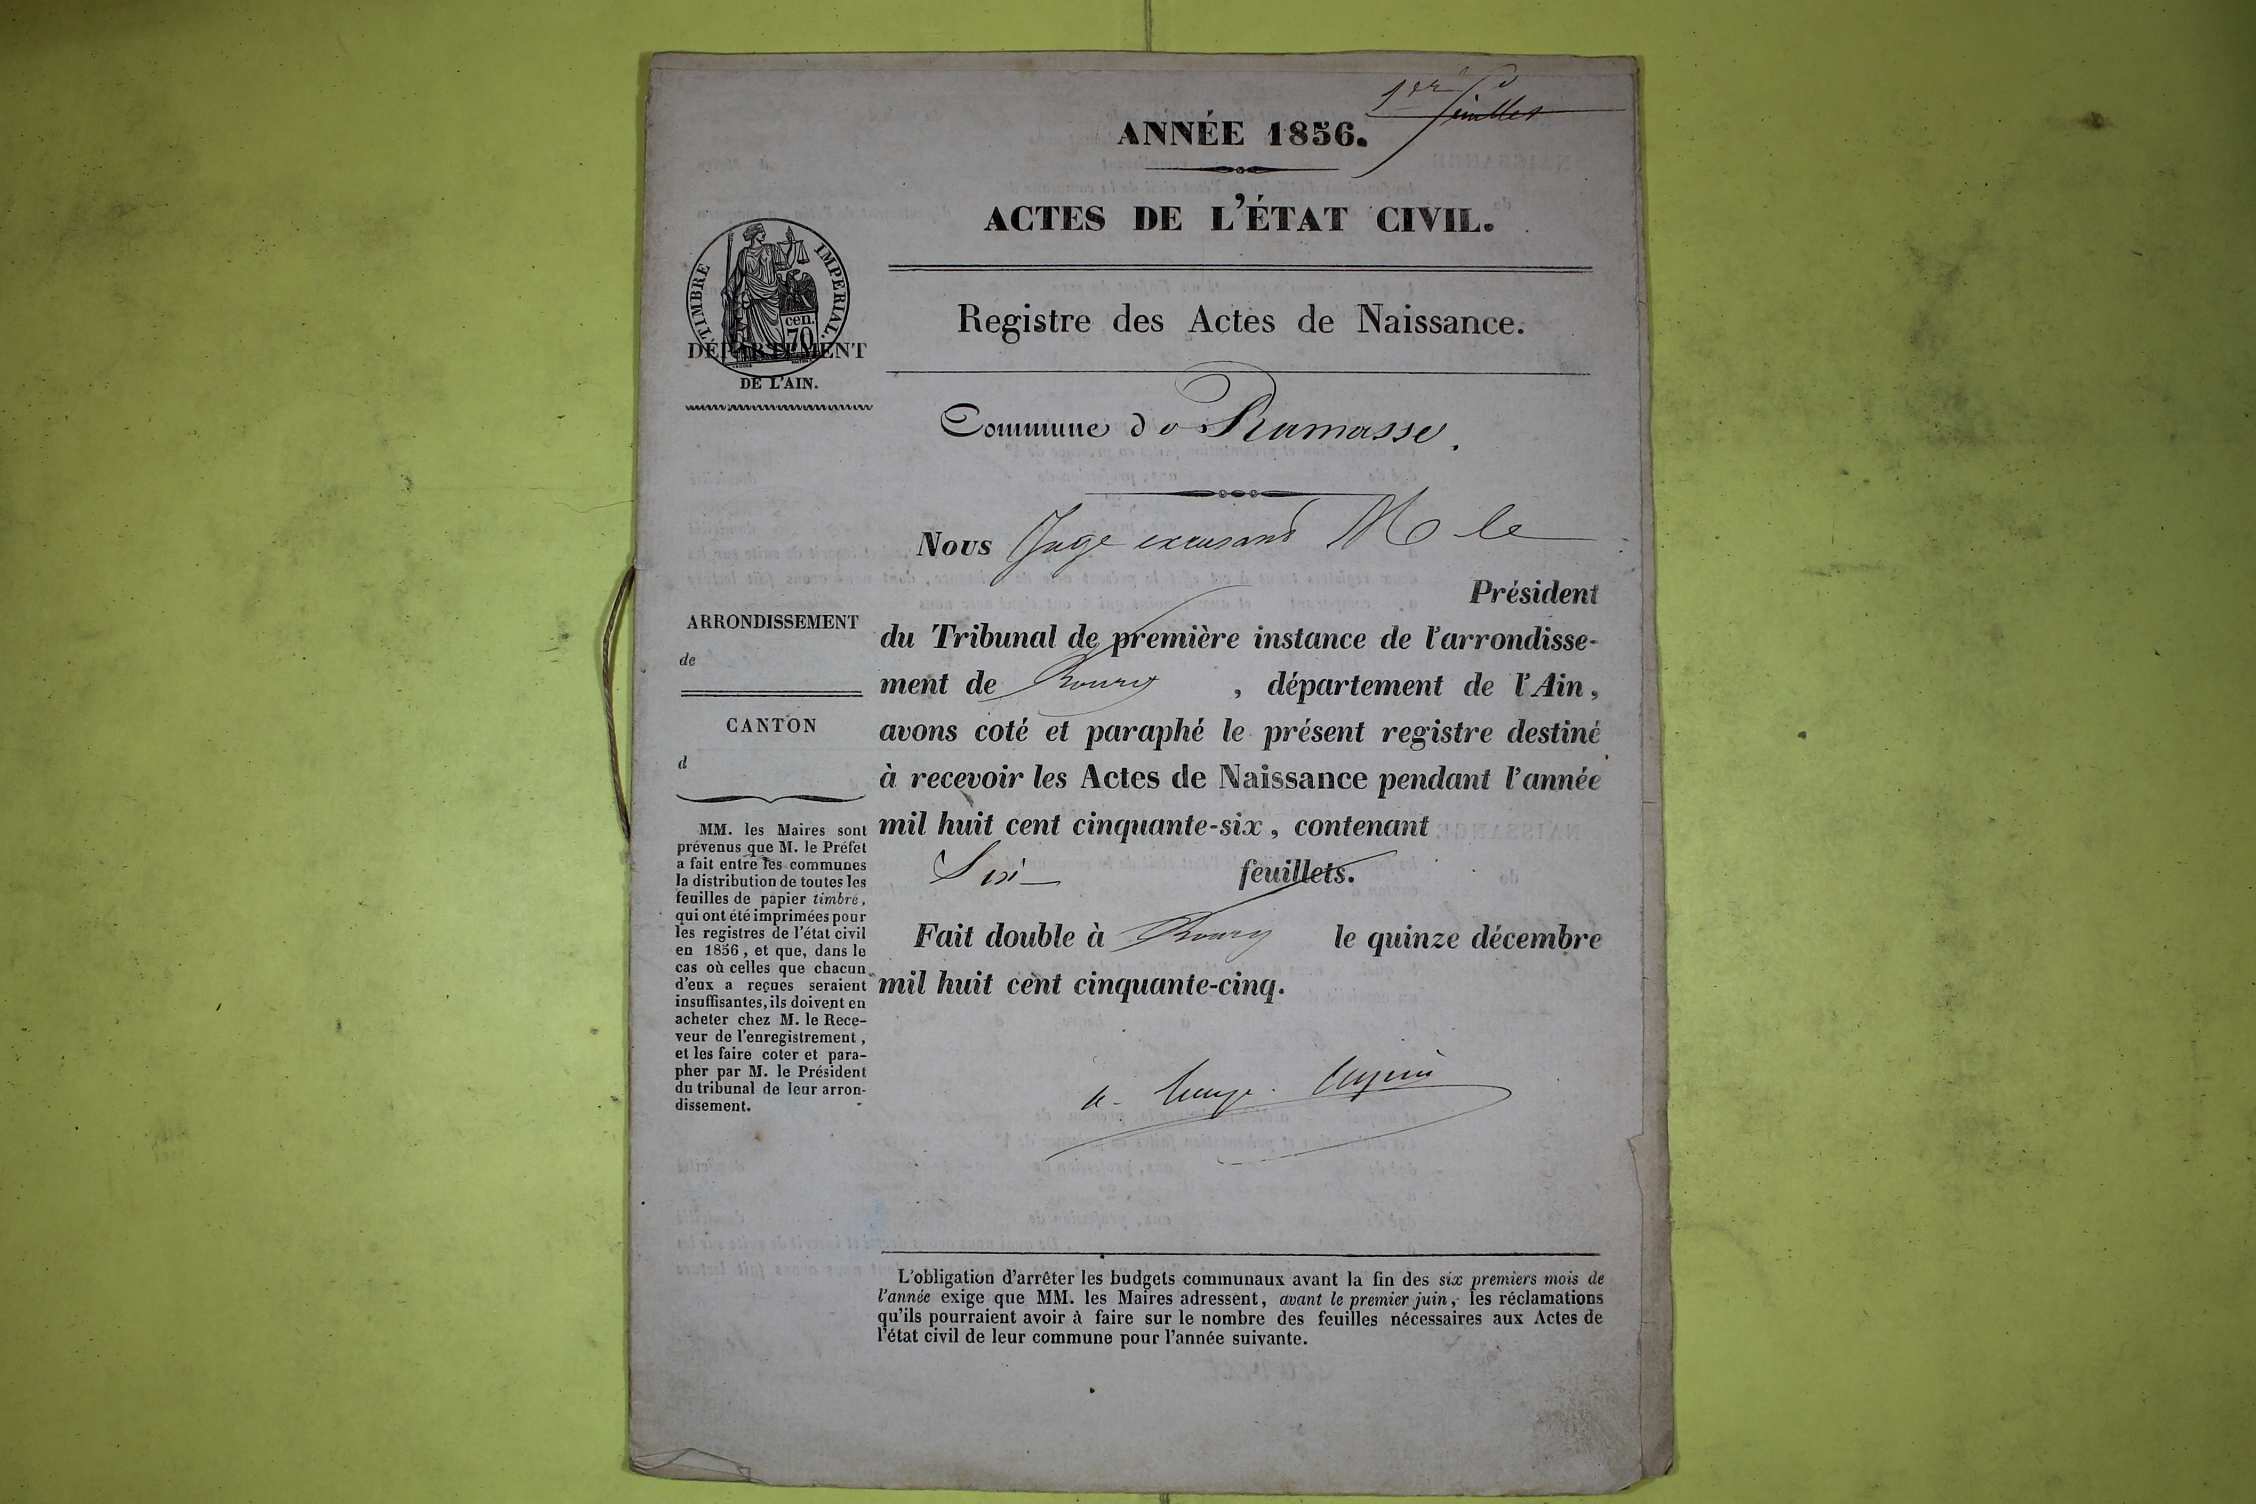 1er feuillet
ANNÉE 1856.
ACTES DE L'ÉTAT CIVIL.
TIMBRE IMPERIAL
cen. 70
DÉPARTEMENT
DE L'AIN.
Registre des Actes de Naissance.
Commune de Ramasse.
Nous Juge excusant M le
Président
du Tribunal de première instance de l'arrondisse-
ment de Bourg , département de l'Ain,
avons coté et paraphé le présent registre destiné
à recevoir les Actes de Naissance pendant l'année
mil huit cent cinquante-six, contenant
Six feuillets.
Fait double à Bourg le quinze décembre
mil huit cent cinquante-cinq.
ARRONDISSEMENT
de
CANTON
d
MM. les Maires sont
prévenus que M. le Préfet
a fait entre les communes
la distribution de toutes les
feuilles de papier timbré,
qui ont été imprimées pour
les registres de l'état civil
en 1856, et que, dans le
cas où celles que chacun
d'eux a reçues seraient
insuffisantes, ils doivent en
acheter chez M. le Rece-
veur de l'enregistrement,
et les faire coter et para-
pher par M. le Président
du tribunal de leur arron-
dissement.
L'obligation d'arrêter les budgets communaux avant la fin des six premiers mois de
l'année exige que MM. les Maires adressent, avant le premier juin, les réclamations
qu'ils pourraient avoir à faire sur le nombre des feuilles nécessaires aux Actes de
l'état civil de leur commune pour l'année suivante.